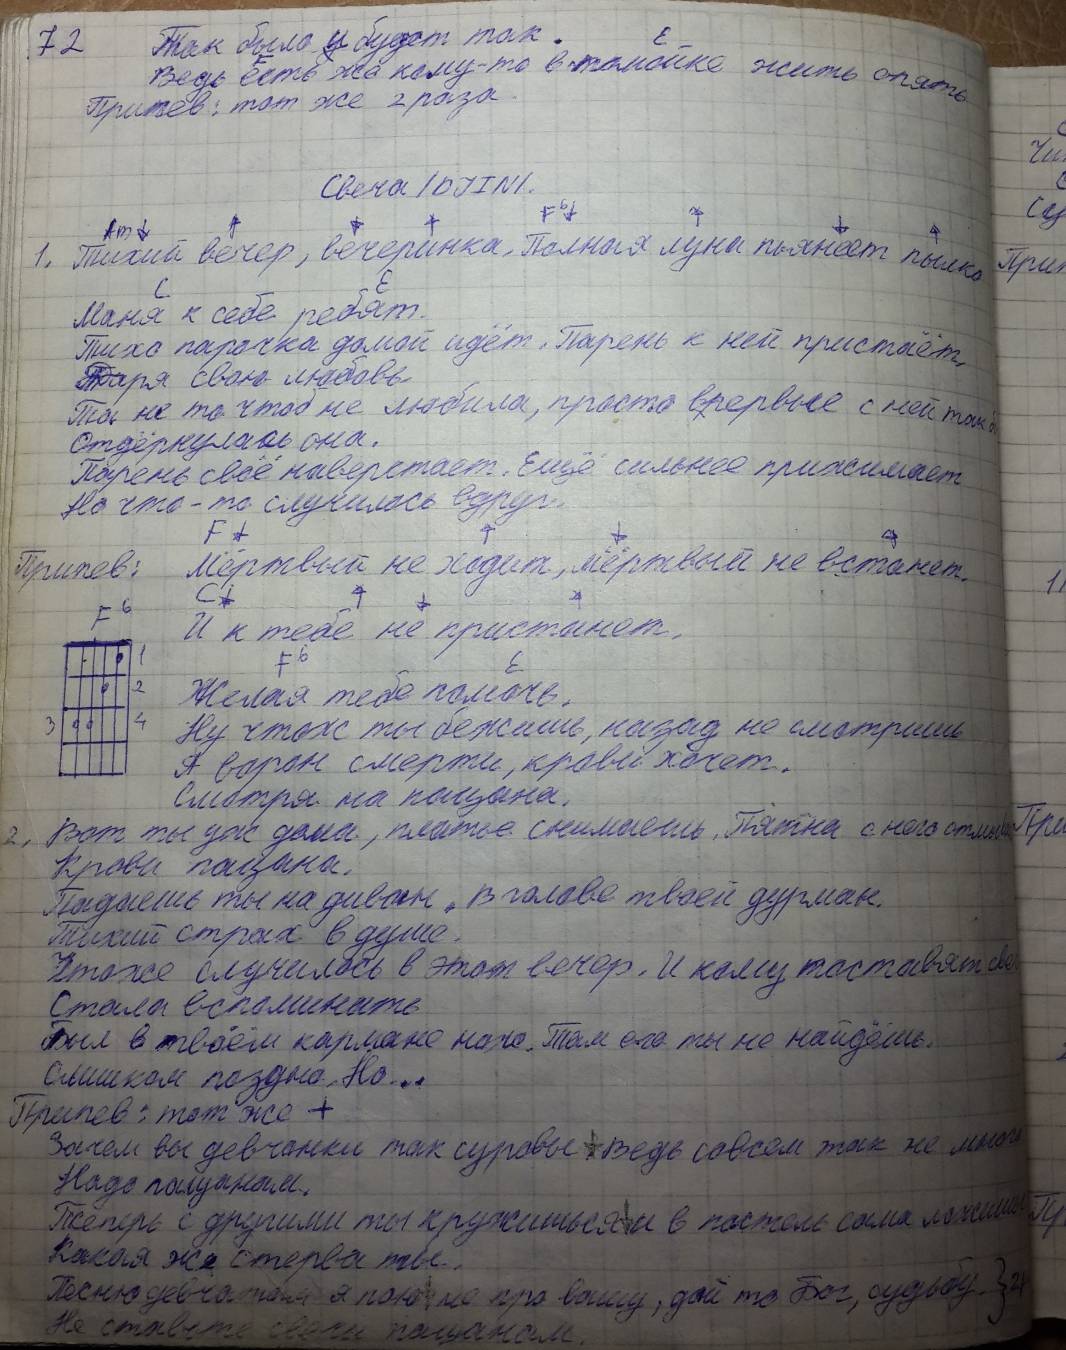 72 Так было и будет так. E
Ведь есть же кому-то в помойке жить опять
Припев: тот же 2 раза.
Свеча /DJIN/.
Am↓ ↑ ↓ ↑ F6↓ ↑ ↓ ↑
1. Тихий вечер, вечеринка. Полная луна пьянеет пылко
C E
Маня к себе ребят.
Тихо парочка домой идёт. Парень к ней пристаёт,
Даря свою любовь
То не то чтоб не любила, просто впервые с ней так
Отдёрнулась она.
Парень своё наверстает. Ещё сильнее прижимает
Но что-то случилось вдруг.
F↓ ↑ ↓ ↑
Припев: Мёртвый не ходит, мёртвый не встанет.
C↓ ↑ ↓ ↑
И к тебе не пристанет.
F6
F6 E
1
2
3 4
Желая тебе помочь.
Ну что ж ты бежишь, назад не смотришь
А ворон смерти, крови хочет.
Смотря на пацана.
2. Вот ты уж дома, платье снимаешь. Пятна с него
Крови пацана.
Падаешь ты на диван. В голове твоей дурман.
Тихий страх в душе.
Что же случилось в этот вечер. И кому поставят
Стала вспоминать
Был в твоём кармане ножо. Там его ты не найдёшь.
Слишком поздно. Но...
Припев: тот же +
Зачем вы девчонки так суровы + Ведь совсем так не много
Надо пацанам.
Теперь с другими ты кружишься и в постель сама
Какая же стерва ты.
Песню девчатам я пою не про вашу, дай то Бог, судьбу. } 2
Не ставьте свечи пацанам.
Чи
Су
Прип
11
При
Пр